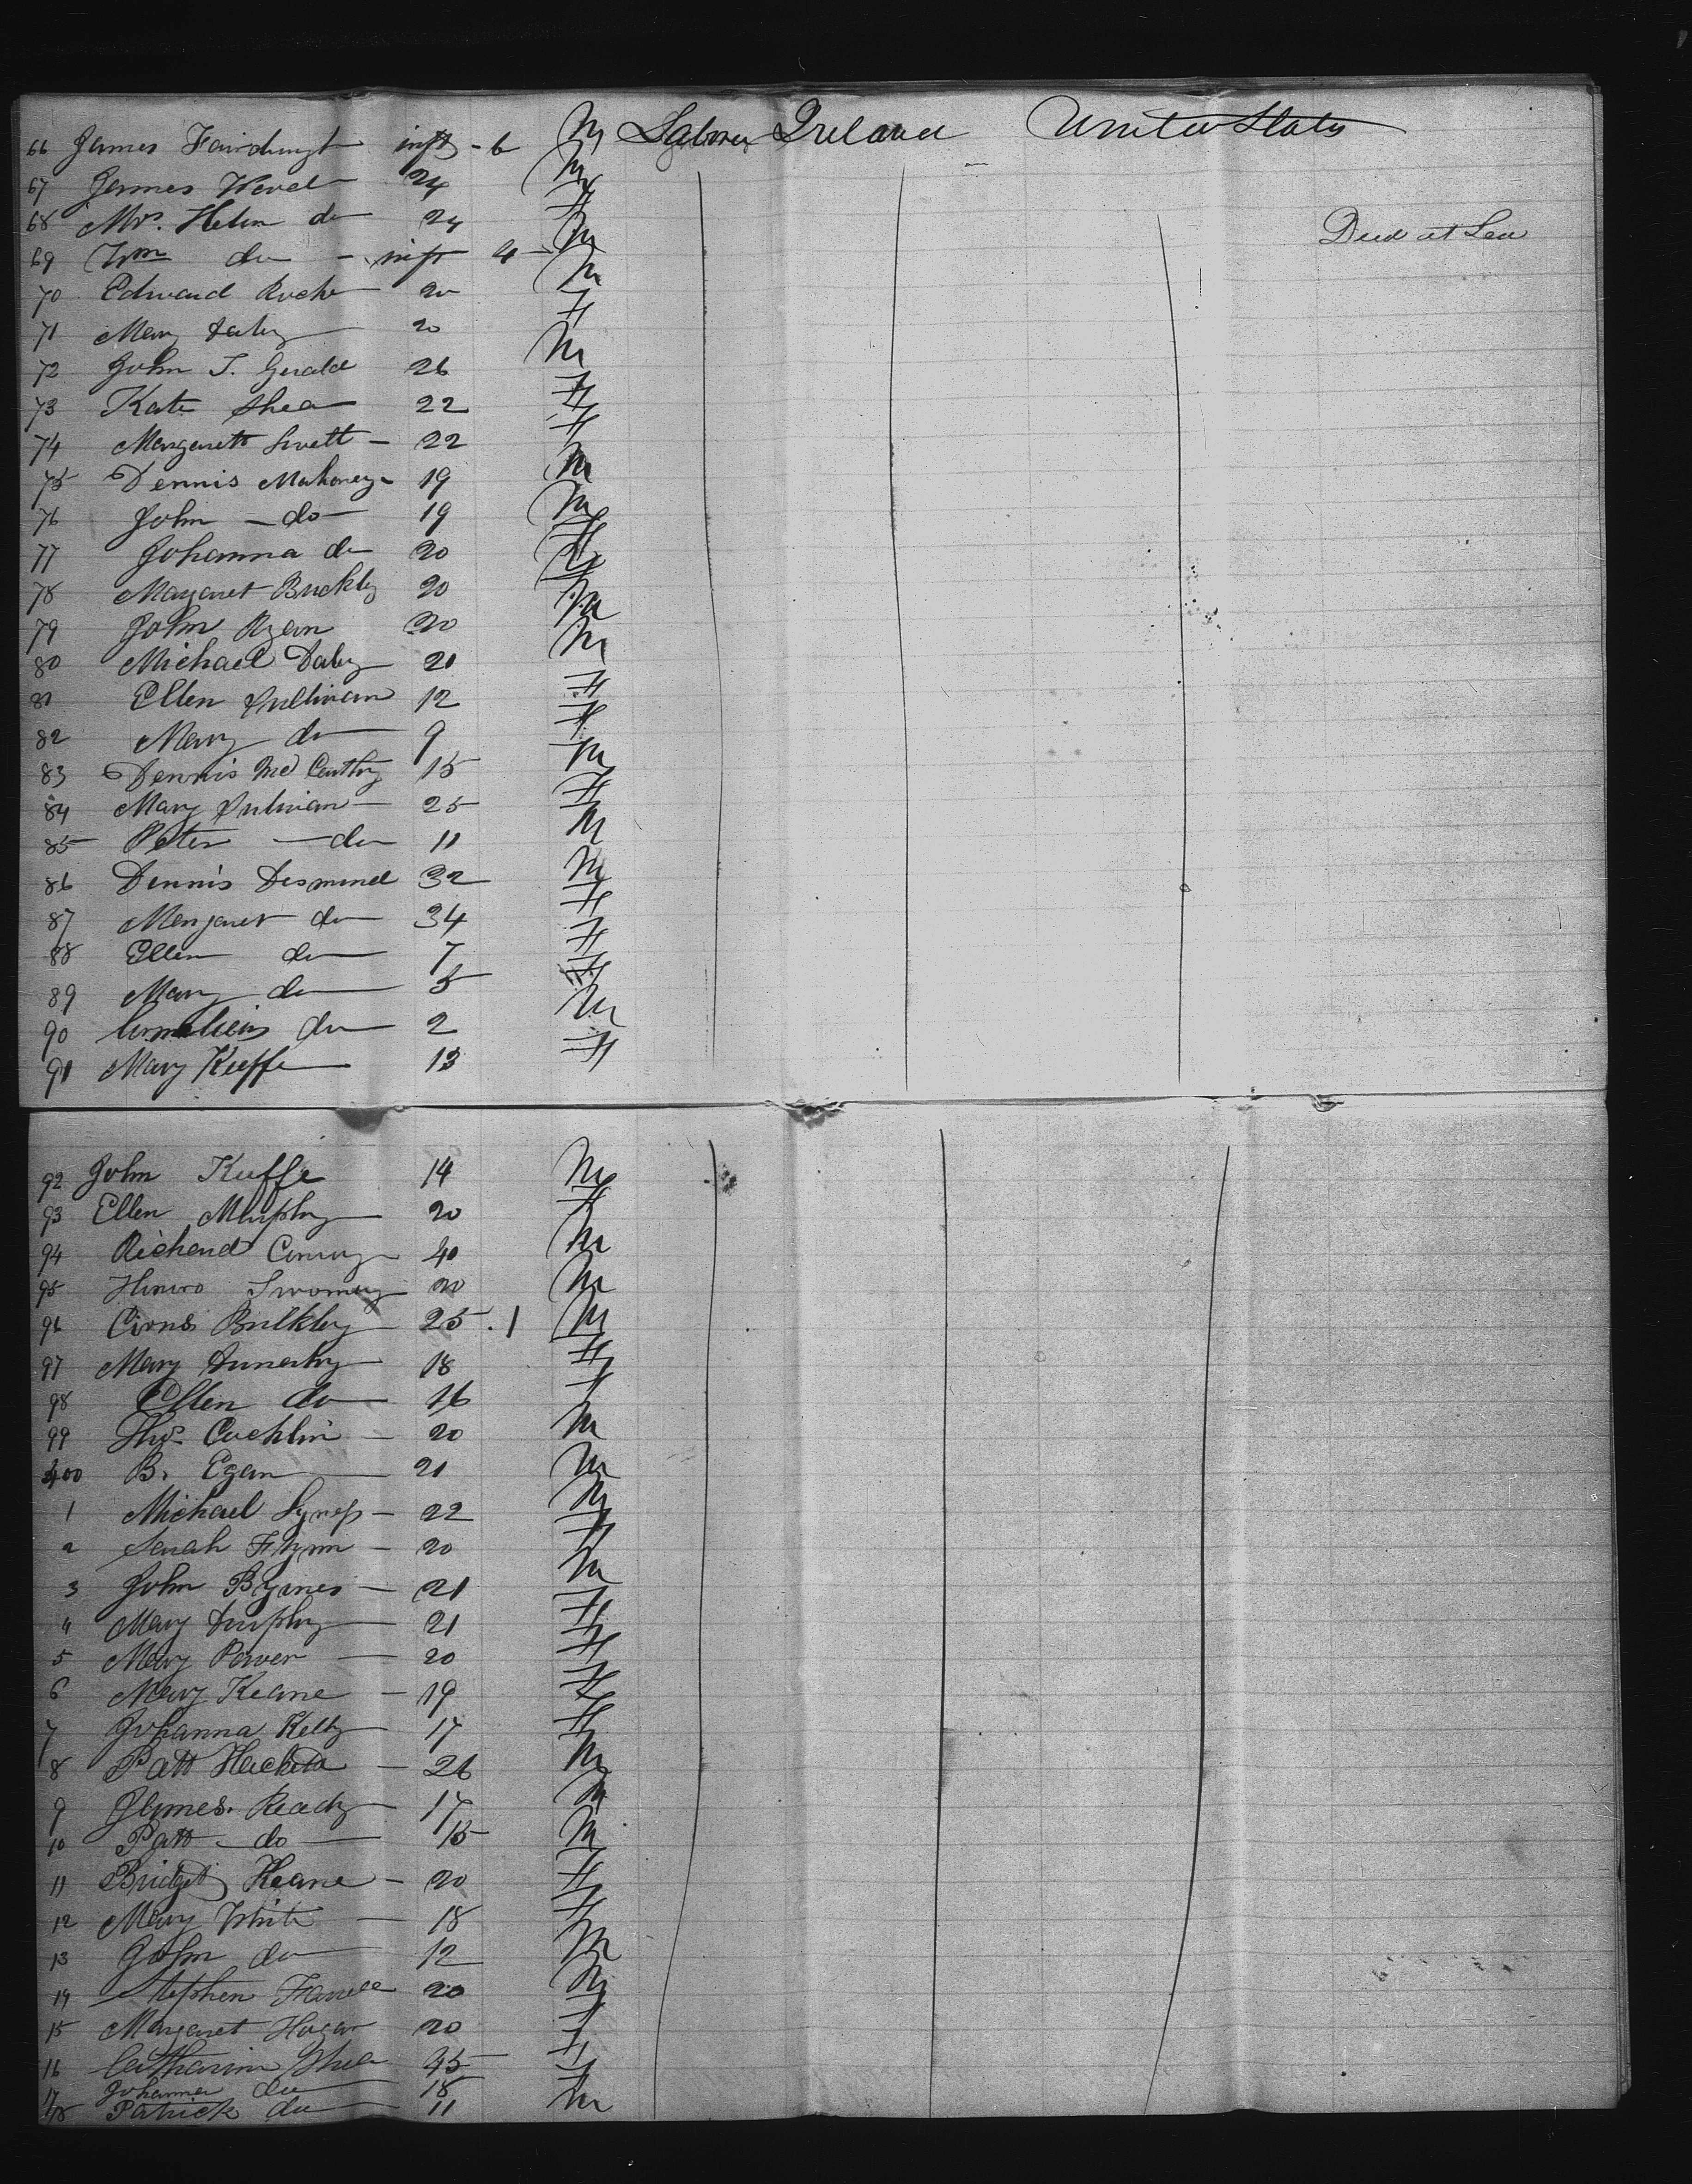 66 James inft - 6 M Laborer Ireland United States
67 James Ward 24 M
68 Mrs. Helen do 24 F
69 Wm do - inft 4 - M Died at Sea
70 Edward Roche 20 M
71 Mary Daly 20 F
72 John F. Gerald 26 M
73 Kate Shea 22 F
74 Margarett - 22 F
75 Dennis Mahoney - 19 M
76 John - do - 19 M
77 Johanna do 20 F
78 Margaret Buckley 20 F
79 John Ryan 20 M
80 Michael Daly 21 M
81 Ellen Sullivan 12 F
82 Mary do 9 F
83 Dennis Mc Carthy 15 M
84 Mary Sulivan - 25 F
85 Peter - do 11 M
86 Dennis Desmond 32 M
87 Margaret do 34 F
88 Ellen do 7 F
89 Mary do 5 F
90 Cornelius do 2 M
91 Mary Keeffe 13 F
92 John Keeffe 14 M
93 Ellen Murphy 20 F
94 Richard Conway 40 M
95 20 M
96 Bulkley 25 . 1 M
97 Mary 18 F
98 Ellen do 16 F
99 Thos. Cochlin - 20 M
400 B. Egan 21 M
1 Michael - 22 M
2 Sarah Flynn - 20 F
3 John Byrnes - 21 M
4 Mary 21 F
5 Mary Power - 20 F
6 Mary Keane - 19 F
7 Johanna Kelly 17 F
8 Patt Hackett - 26 M
9 James Ready 17 M
10 Patt - do 15 M
11 Bridget Keane - 20 F
12 Mary White - 18 F
13 John do 12 M
14 Stephen Farrell 20 M
15 Margaret Hogan 20 F
16 Catharine Shea 45 F
17 Johanna do 18 F
18 Patrick do 11 M